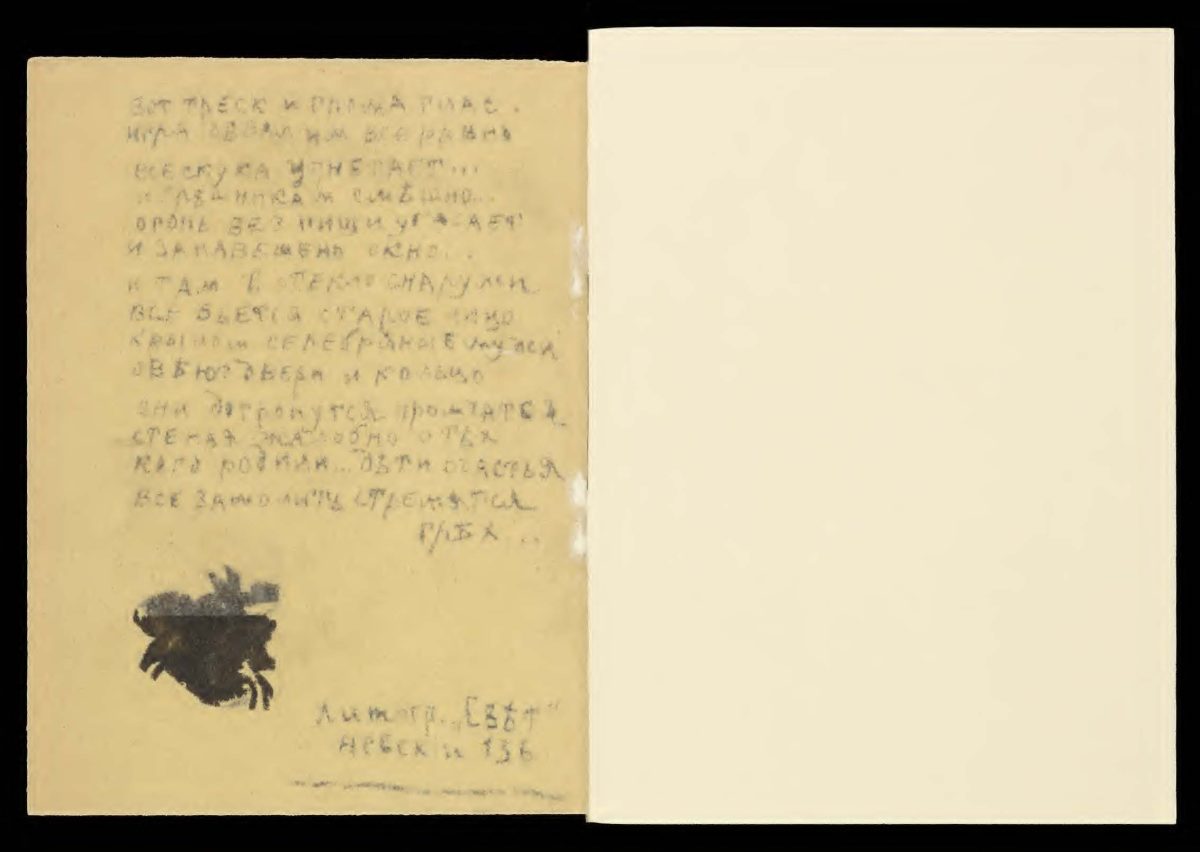 вот треск и грома глас.
игра обвал им все равно
все скука угнетает...
и грешникам смѣшно...
огонь без пищи угасает
и занавешено окно...
и там в стекло снаружи
все бьется старое лицо
крылом серебряные мужи
овѣют двери и кольцо
они дотронутся промчатся
стеная жалобно о тѣх
кого родили... дѣти счастья
все замолить стремятся
грѣх...
Литогр. „Свѣт"
Невский 136